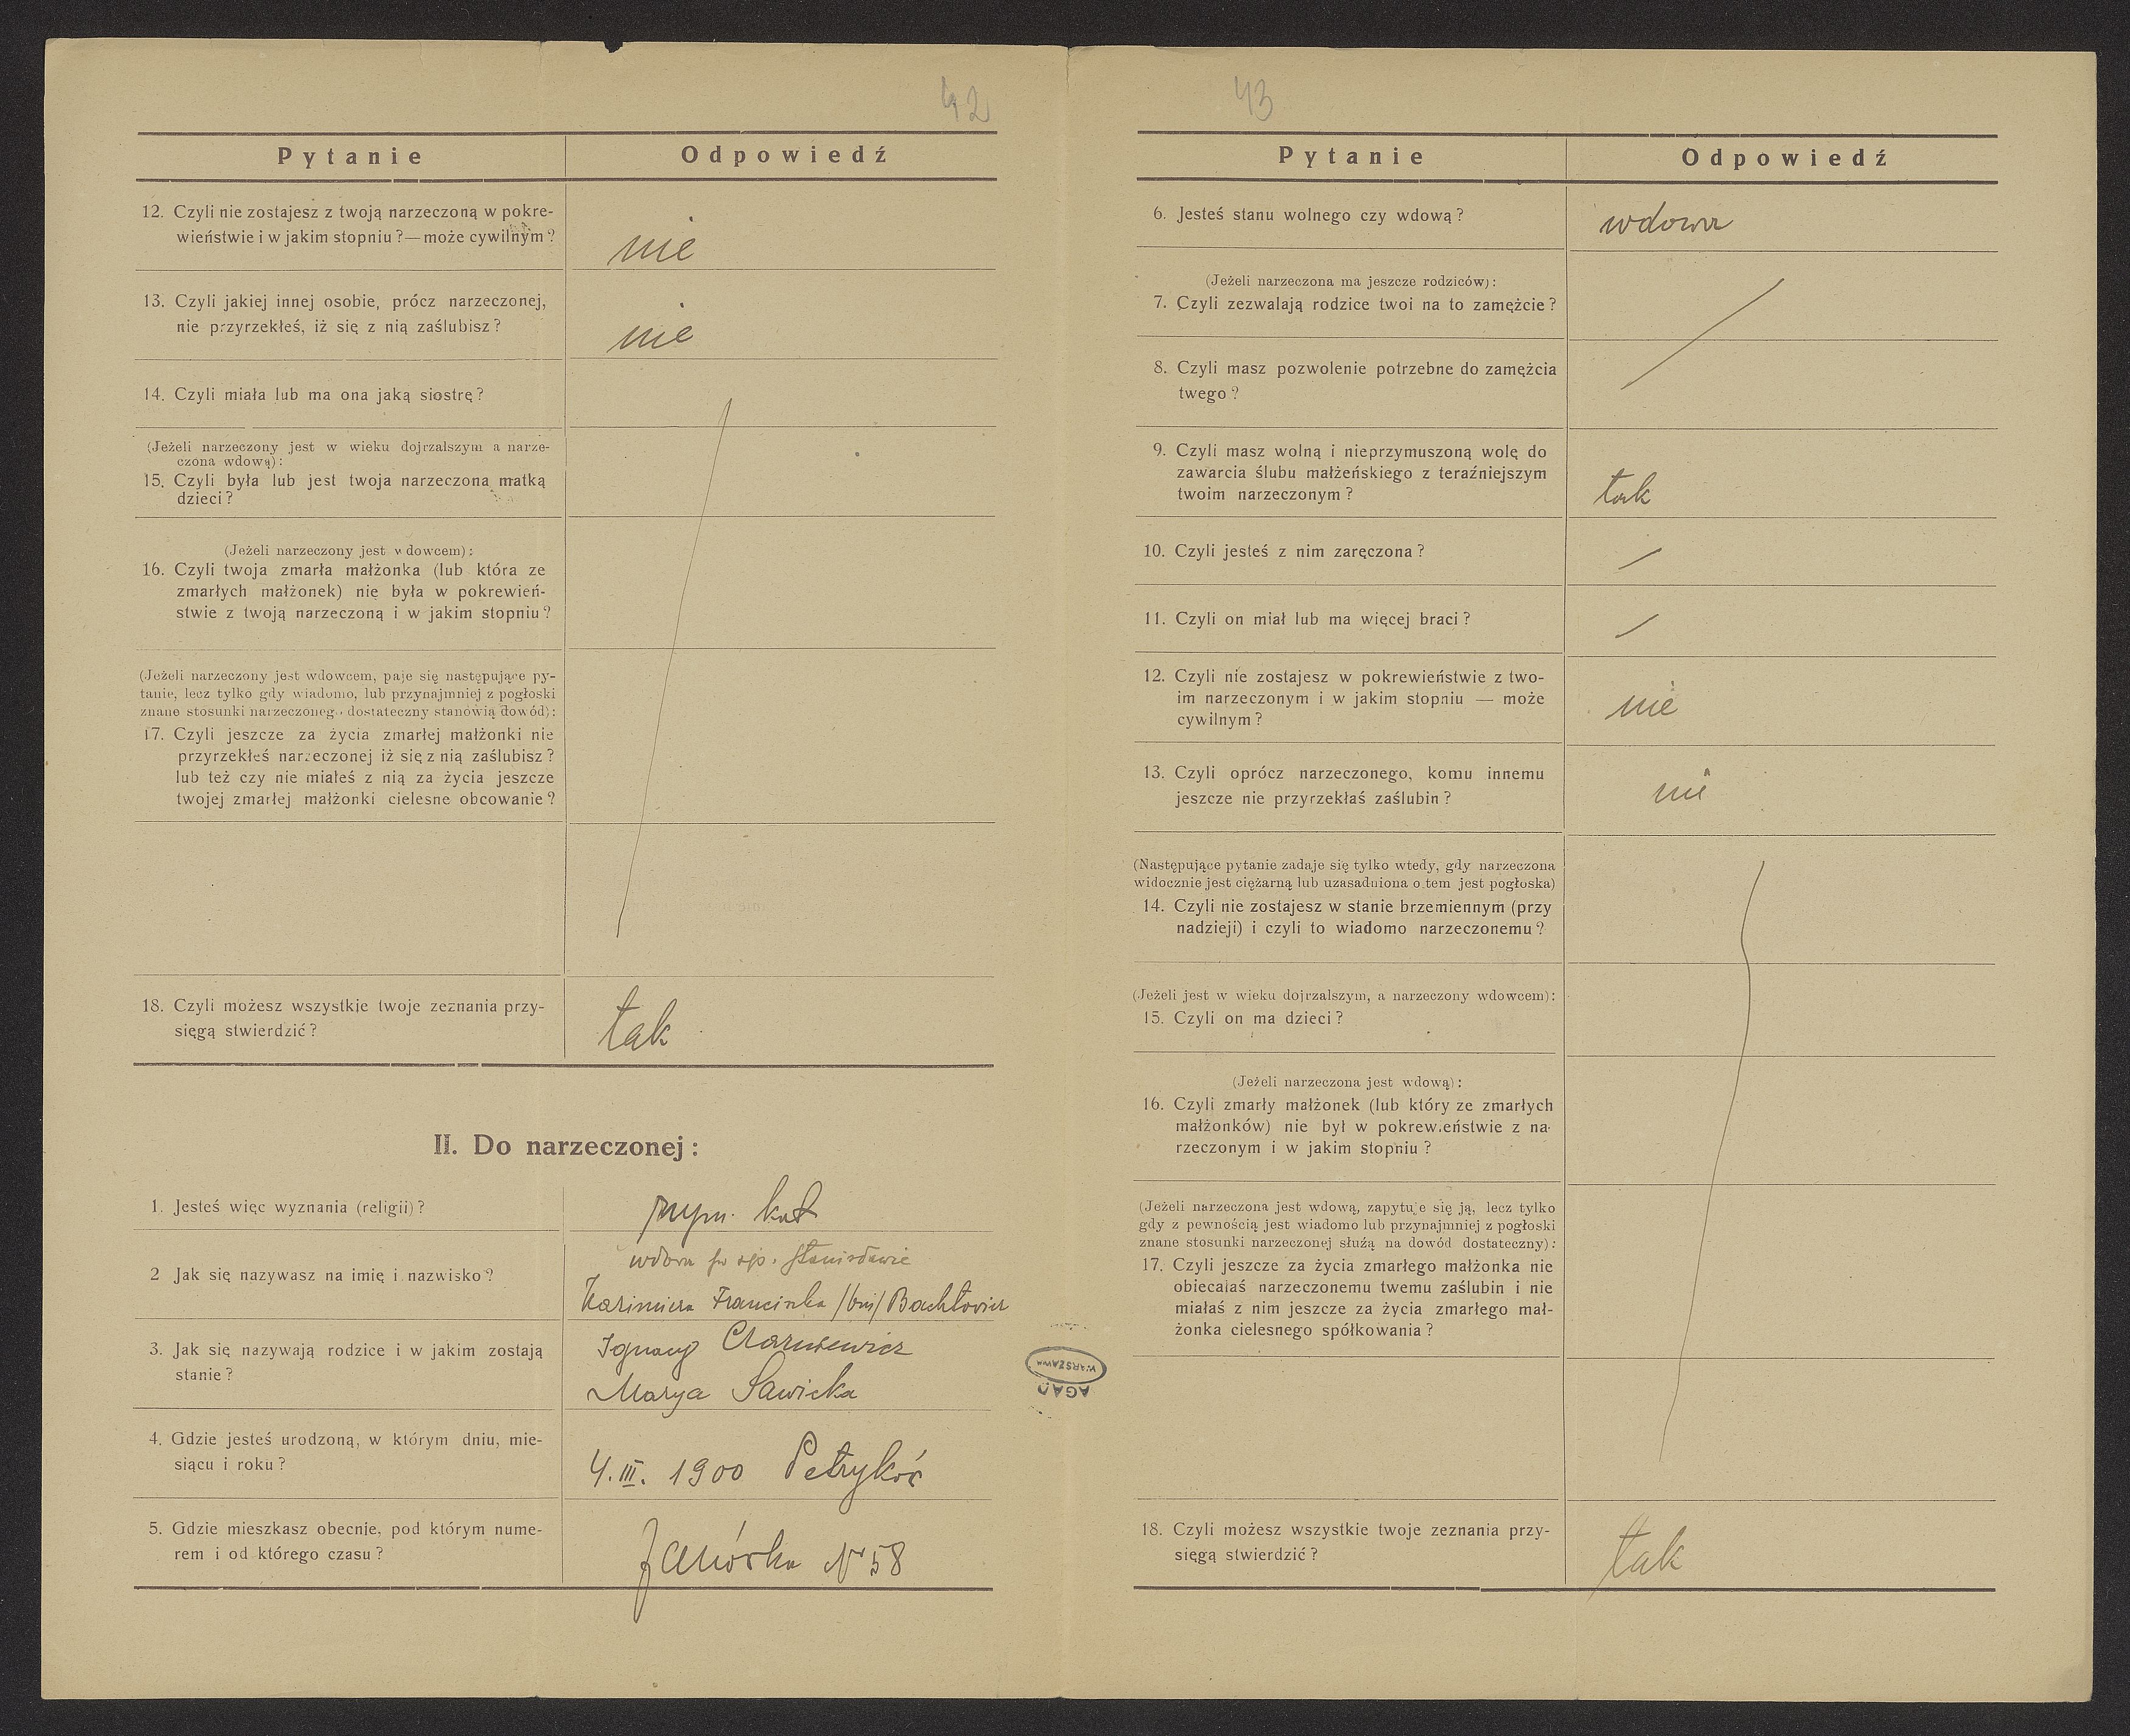 42
Pytanie
Odpowiedź
12. Czyli nie zostajesz z twoją narzeczoną w pokre-
wieństwie i w jakim stopniu?—może cywilnym?
nie
13. Czyli jakiej innej osobie, prócz narzeczonej,
nie przyrzekłeś, iż się z nią zaślubisz?
nie
14. Czyli miała lub ma ona jaką siostrę?
(Jeżeli narzeczony jest w wieku dojrzalszym a narze-
czona wdową):
15. Czyli była lub jest twoja narzeczona matką
dzieci?
(Jeżeli narzeczony jest wdowcem):
16. Czyli twoja zmarła małżonka (lub która ze
zmarłych małżonek) nie była w pokrewień-
stwie z twoją narzeczoną i w jakim stopniu?
(Jeżeli narzeczony jest wdowcem, paje się następujące py-
tanie, lecz tylko gdy wiadomo, lub przynajmniej z pogłoski
znane stosunki narzeczonego dostateczny stanowią dowód):
17. Czyli jeszcze za życia zmarłej małżonki nie
przyrzekłeś narzeczonej iż się z nią zaślubisz?
lub też czy nie miałeś z nią za życia jeszcze
twojej zmarłej małżonki cielesne obcowanie?
18. Czyli możesz wszystkie twoje zeznania przy-
sięgą stwierdzić?
tak
II. Do narzeczonej:
1. Jesteś więc wyznania (religii)?
rzym. kat
2 Jak się nazywasz na imię i nazwisko?
wdowa po śp. Stanisławie
Kazimiera Franciszka Bachtłovicz
3. Jak się nazywają rodzice i w jakim zostają
stanie?
Ignacy Czarniewicz
Marya Sawicka
4. Gdzie jesteś urodzoną, w którym dniu, mie-
siącu i roku?
4. III. 1900 Petryków
5. Gdzie mieszkasz obecnie, pod którym nume-
rem i od którego czasu?
Janówka Nr 58
AGAD
WARSZAWA
43
Pytanie
Odpowiedź
6. Jesteś stanu wolnego czy wdową?
wdowa
(Jeżeli narzeczona ma jeszcze rodziców):
7. Czyli zezwalają rodzice twoi na to zamężcie?
8. Czyli masz pozwolenie potrzebne do zamężcia
twego?
9. Czyli masz wolną i nieprzymuszoną wolę do
zawarcia ślubu małżeńskiego z teraźniejszym
twoim narzeczonym?
tak
10. Czyli jesteś z nim zaręczona?
11. Czyli on miał lub ma więcej braci?
12. Czyli nie zostajesz w pokrewieństwie z two-
im narzeczonym i w jakim stopniu — może
cywilnym?
nie
13. Czyli oprócz narzeczonego, komu innemu
jeszcze nie przyrzekłaś zaślubin?
nie
(Następujące pytanie zadaje się tylko wtedy, gdy narzeczona
widocznie jest ciężarną lub uzasadniona o tem jest pogłoska)
14. Czyli nie zostajesz w stanie brzemiennym (przy
nadzieji) i czyli to wiadomo narzeczonemu?
(Jeżeli jest w wieku dojrzalszym, a narzeczony wdowcem):
15. Czyli on ma dzieci?
(Jeżeli narzeczona jest wdową):
16. Czyli zmarły małżonek (lub który ze zmarłych
małżonków) nie był w pokrewieństwie z na-
rzeczonym i w jakim stopniu?
(Jeżeli narzeczona jest wdową, zapytuje się ją, lecz tylko
gdy z pewnością jest wiadomo lub przynajmniej z pogłoski
znane stosunki narzeczonej służą na dowód dostateczny):
17. Czyli jeszcze za życia zmarłego małżonka nie
obiecałaś narzeczonemu twemu zaślubin i nie
miałaś z nim jeszcze za życia zmarłego mał-
żonka cielesnego spółkowania?
18. Czyli możesz wszystkie twoje zeznania przy-
sięgą stwierdzić?
tak